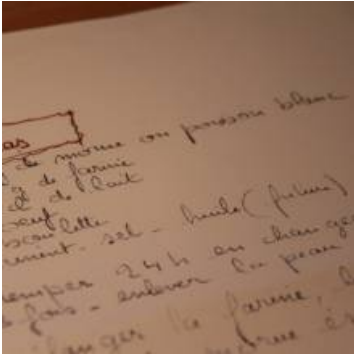 as
de morue ou poisson blanc
g de farine
de lait
oeuf
ciboulette
piment - sel - huile (friture)
tremper 24 h en changer
fois - enlever la peau
langer la farine, l
morue